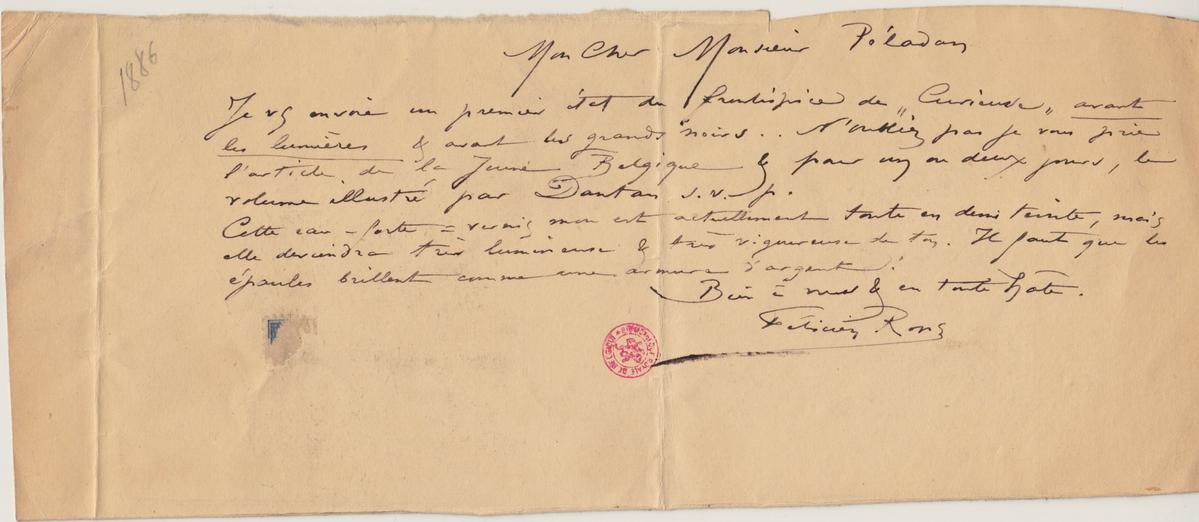 1886
Mon Cher Monsieur Péladan
Je vs envoie un premier état du frontispice de „Curieuse„ avant
les lumières & avant les grands noirs.. N'oubliez pas je vous prie
l'article de la Jeune Belgique & pour un ou deux jours, le
volume illustré par Dantan s.v.p.
Cette eau-forte = vernis mou est actuellement toute en demi teinte, mais
elle deviendra très lumineuse & très vigoureuse de ton. Il faut que les
épaules brillent comme une armure d'argent!
Bien à vous & en toute hâte.
Félicien Rops